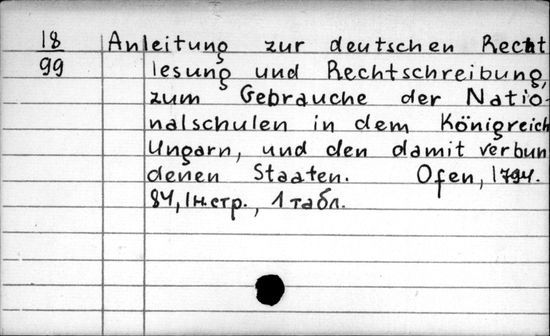 18 Anleitung zur deutschen Recht
99 lesung und Rechtschreibung,
zum Gebrauche der Natio-
nalschulen in dem Königreich
Ungarn, und den damit verbun
denen Staaten. Ofen, 1794.
84, 1 н. стр., 1 табл.